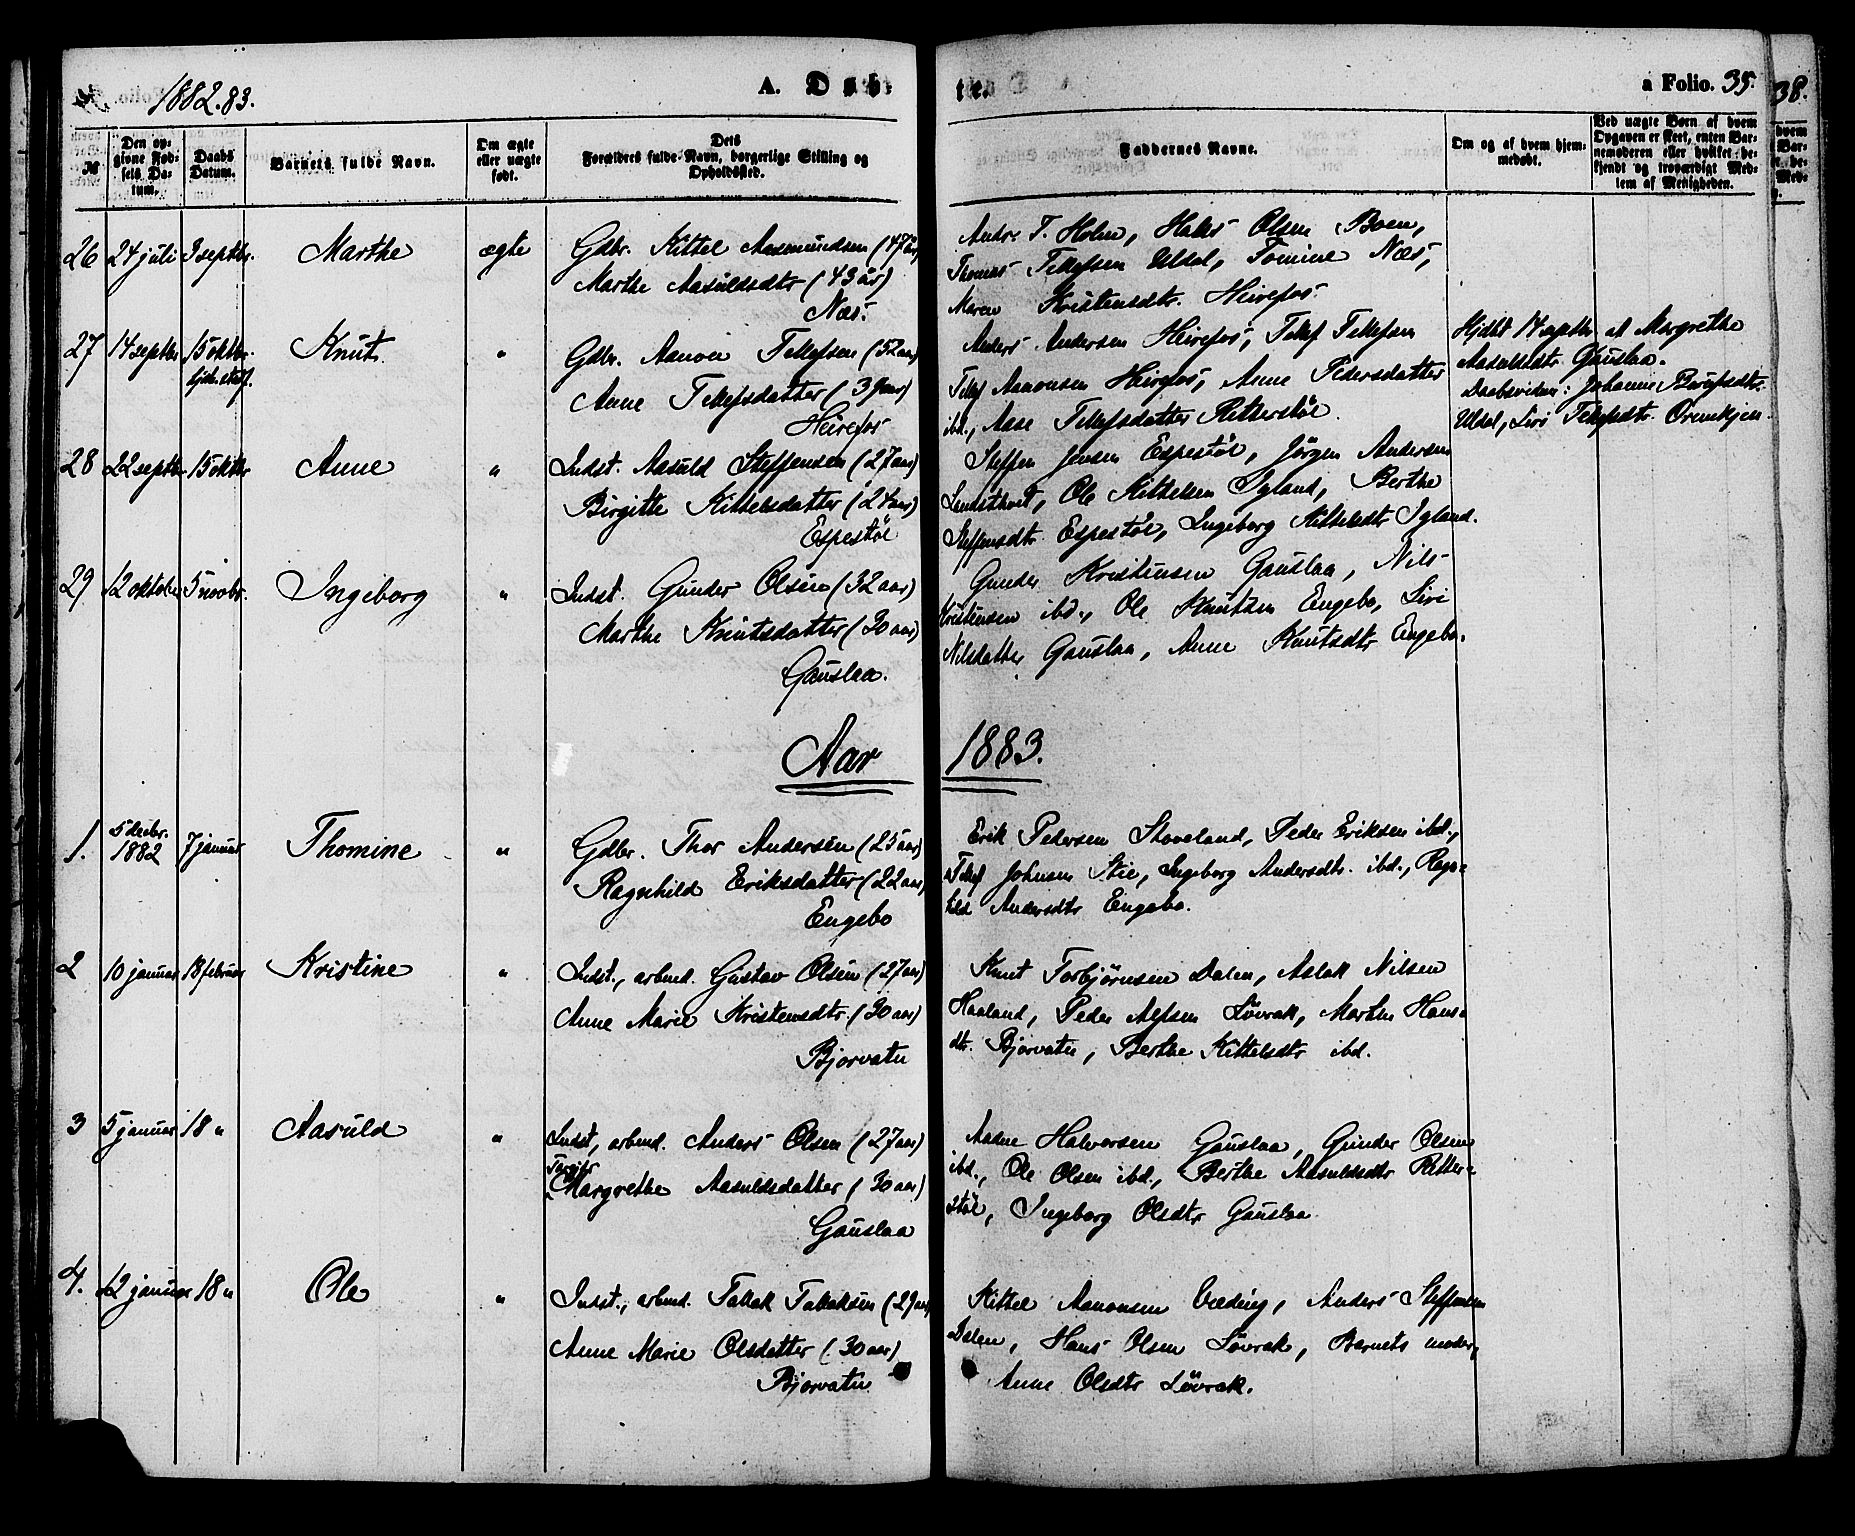 1882.83.
A. Døb
te.
a Folio. 35.
38.
№
Den opgivne Fødsels Datum.
Daabs Datum.
Barnets fulde Navn.
Om ægte eller uægte født.
Dets Forældres fulde Navn, borgerlige Stilling og Opholdssted.
Faddernes Navne.
Om og af hvem hjemmedøbt.
Ved uægte Børn af hvem Opgaven er skeet, enten Barnemoderen eller hvilket bekjendt og troværdigt Medlem af Menigheden.
26 24 juli 3 septbr. Marthe ægte Gdbr. Kittel Aasmundsen (47 år)
Marthe Aasuldsdtr (43 år)
Næs.
Andr. T. Holm, Hakes Olsen Boen,
Thomas Tellefsen Uldal, Tomine Næs,
Maren Kristensdtr. Heirefos.
27 14 septbr 15 oktbr. Knut " Gdbr. Aanon Tellefsen (52 aar)
hj.d. stadf.
Anne Tellefsdatter (39 aar)
Heirefos
Anders Andersen Heirefos, Tellef Tellefsen
Tellef Aanonsen Heirefos, Anne Pedersdatter
ibd., Aase Tellefsdatter Retterstøl.
Hjdbt 14 septbr. at Margrethe
Aasuldsdtr Gauslaa.
Daabsvidner: Johanne
Uldal, Siri Tellefsdtr.
28 22 septbr 15 oktbr Anne " Indst. Aasuld Steffensen (27 aar)
Birgitte Kittelsdatter (24 aar)
Espestøl
Steffen Jensen Espestøl, Jørgen Andersen
Ole Kittelsen Igland, Berthe
Steffensdtr. Espestøl, Ingeborg Kittelsdtr Igland.
29 12 oktober 5 novbr. Ingeborg " Indst. Gunder Olsen (32 aar)
Marthe Knutsdatter (30 aar)
Gauslaa.
Gunder Kristensen Gauslaa, Nils
Kristensen ibd., Ole Knutsen Engebo, Siri
Nilsdatter Gauslaa, Anne Knutsdtr Engebo.
Aar 1883.
1. 5 decbr. 1882 7 januar Thomine " Gdbr. Thor Andersen (25 aar)
Ragnhild Eriksdatter (22 aar)
Engebo
Erik Pedersen Stoveland, Peder Eriksen ibd.,
Tellef Johnsen Stie, Ingeborg Andersdtr. ibd., Ragn=
hild Andersdtr Engebo.
2 10 januar 18 februar Kristine " Indst., arbmd. Gustav Olsen (27 aar)
Anne Marie Kristensdtr. (30 aar)
Bjorvatn
Knut Torbjørnsen Dalen, Aslak Nilsen
Haaland, Peder Alfsen Løvrak, Marthe Hans=
dtr. Bjorvatn, Berthe Kittelsdtr ibd.
3 5 januar 18 " Aasuld " Indst., arbmd. Anders Olsen (27 aar)
Margrethe Aasuldsdatter (30 aar)
Gauslaa
Aadne Halvorsen Gauslaa, Gunder Olsen
ibd., Ole Olsen ibd., Berthe Aasuldsdtr Retter=
støl, Ingeborg Olsdtr Gauslaa
4. 12 januar 18 " Ole " Indst., arbmd. Tallak Tallaksen (29 aar)
Anne Marie Olsdatter (30 aar)
Bjorvatn
Kittel Aanonsen Væding, Anders Steffensen
Dalen, Hans Olsen Løvrak, Barnets moder,
Anne Olsdtr Løvrak.